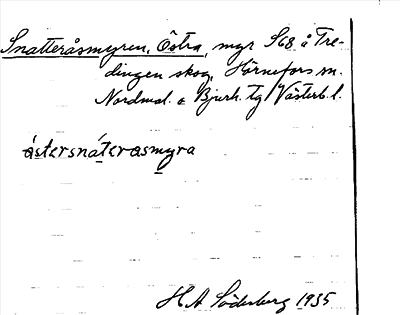 Snatteråsmyren, Östra, myr S68 å Tre-
dingen skog, Hörnefors sn.
Nordmal. o Bjurh. tg Västerb. l.
ástersnáterasmyra
H A Söderberg 1935